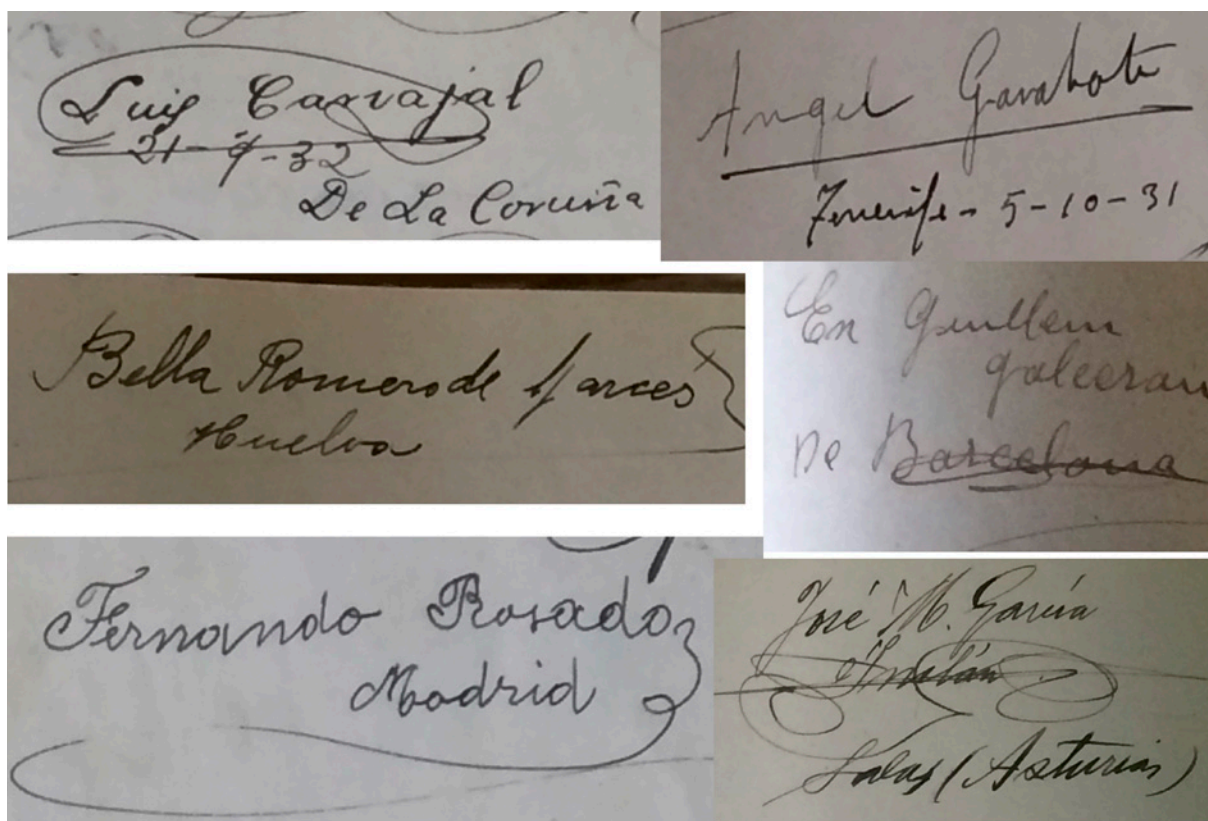 Luis Carvajal
21-9-32
De La Coruña
Angel Garabote
Tenerife - 5-10-31
Bella Romero de Garces
Huelva
En Guillem
galceran
De Barcelona
Fernando Rosado
Madrid
José M. García
Salas (Asturias)